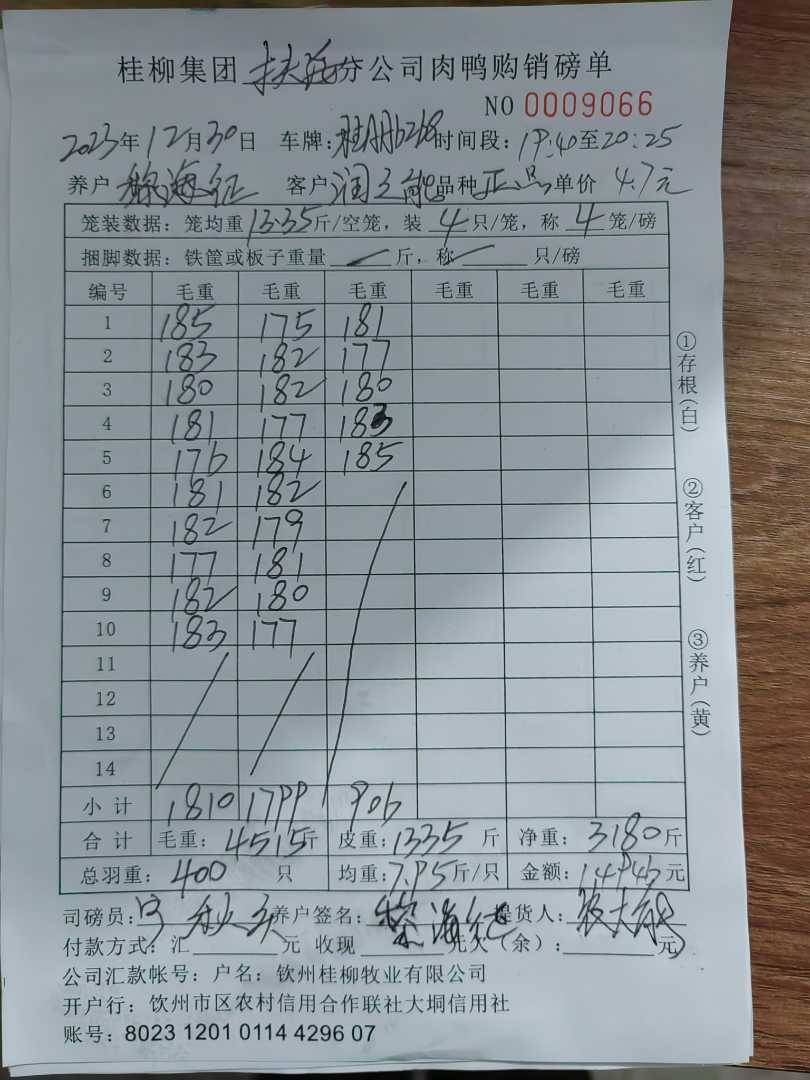 桂柳集团 扶绥分公司肉鸭购销磅单
NO 0009066
2023年12月30日 车牌: 时间段:19:40至20:25
养户 黎海征 客户 品种 正品 单价 4.7元
笼装数据: 笼均重 13.35 斤/空笼, 装 4 只/笼, 称 4 笼/磅
捆脚数据: 铁筐或板子重量 斤, 称 只/磅
编号 毛重 毛重 毛重 毛重 毛重 毛重
1 185 175 181
2 183 182 177
3 180 182 180
4 181 177 183
5 176 184 185
6 181 182
7 182 179
8 177 181
9 182 180
10 183 177
11
12
13
14
小计 1810 1799 906
合计 毛重: 4515斤 皮重: 1335 斤 净重: 3180斤
总羽重: 400 只 均重: 7.95斤/只 金额: 14946元
司磅员: 养户签名: 黎海征 提货人:
付款方式: 汇 元 收现 元欠(余): 元
公司汇款帐号: 户名: 钦州桂柳牧业有限公司
开户行: 饮州市区农村信用合作联社大垌信用社
账号: 8023 1201 0114 4296 07
①存根(白)
②客户(红)
③养户(黄)